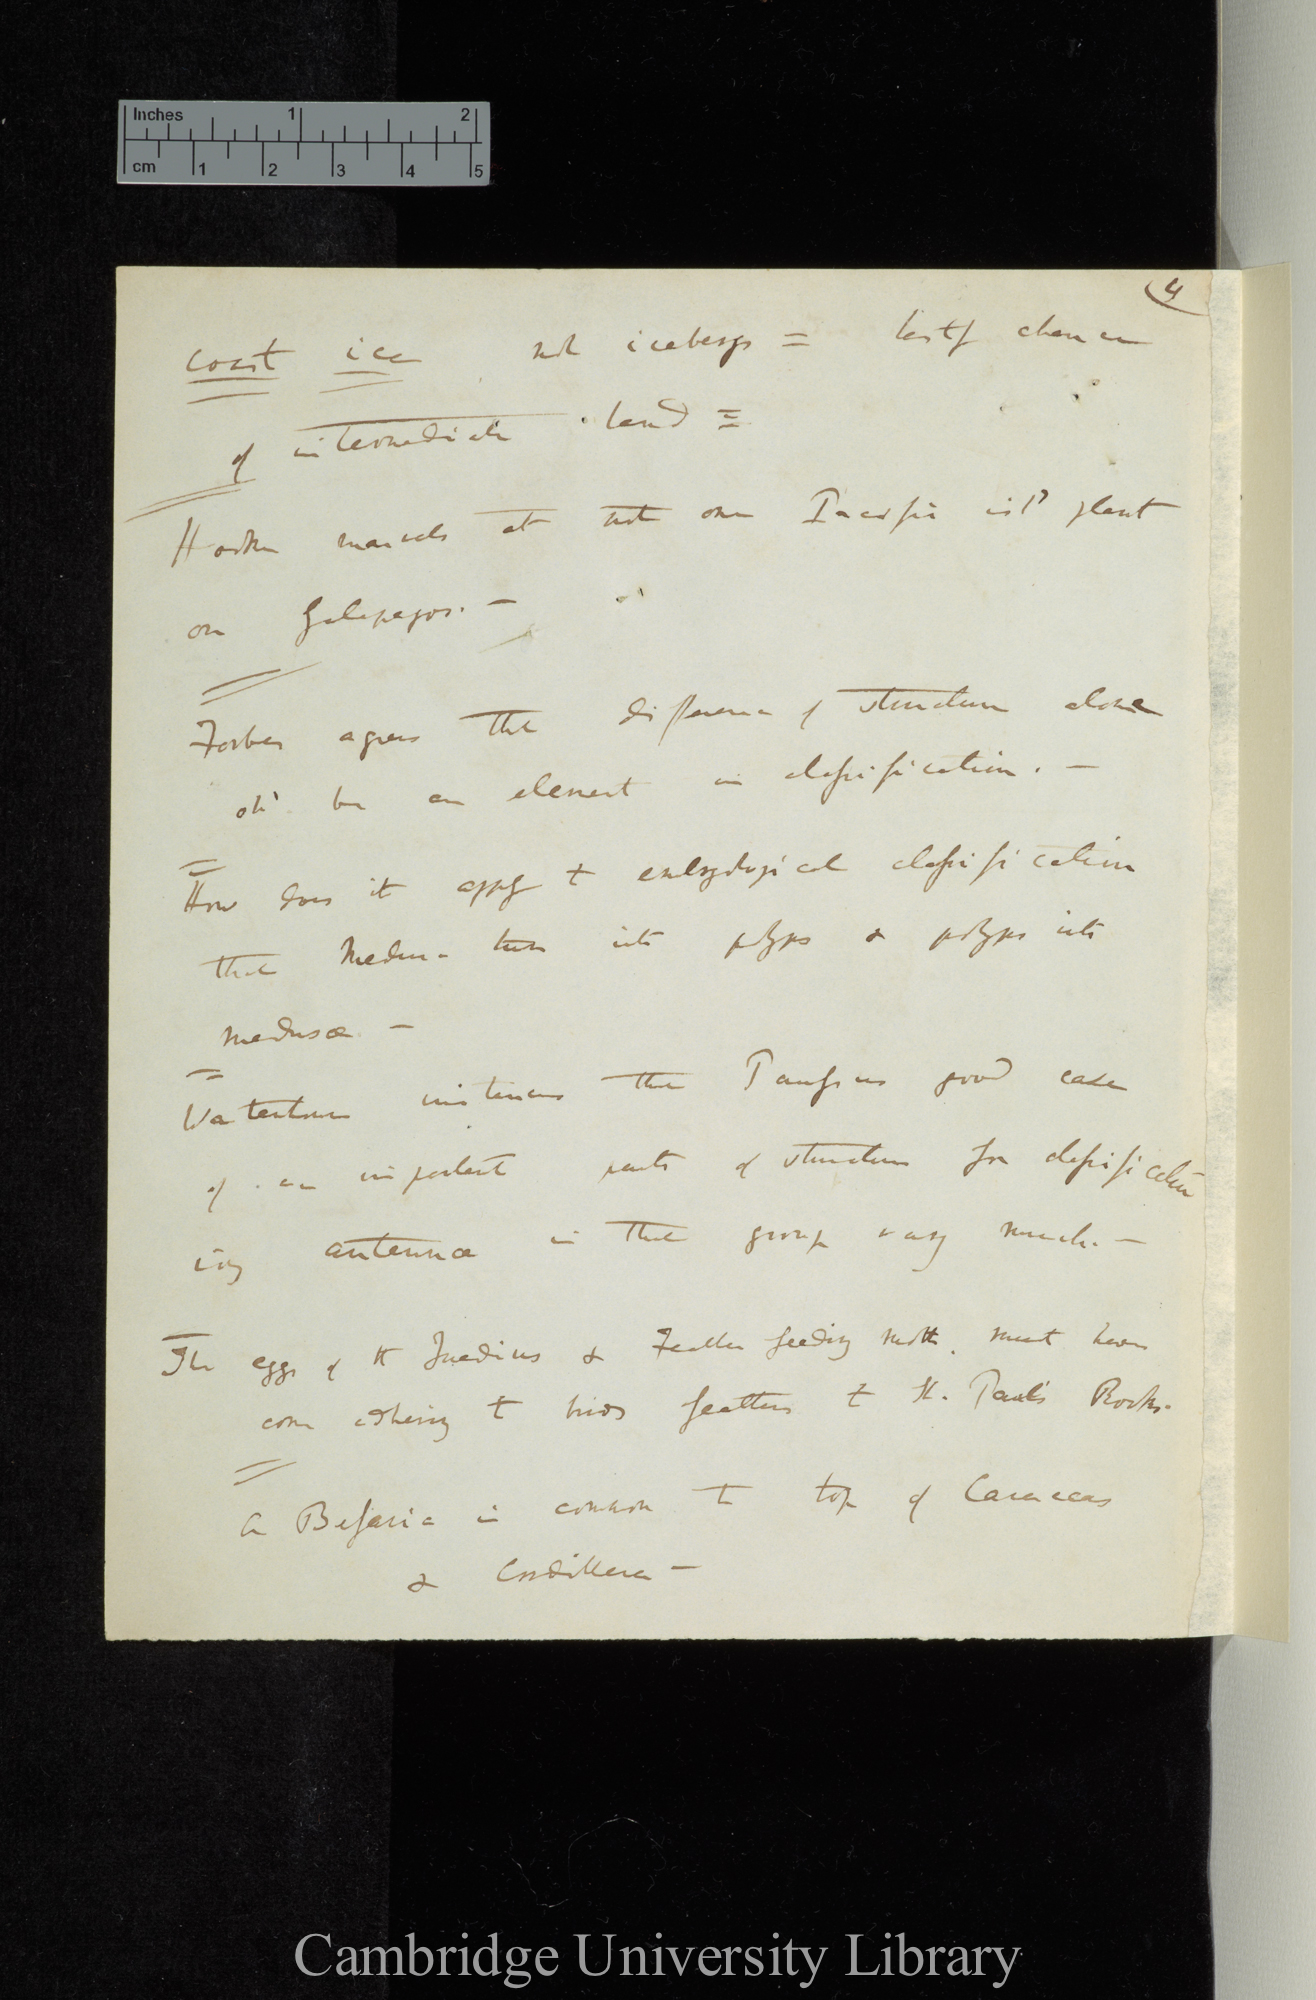 Inches 1 2
cm 1 2 3 4 5
4
coast ice not icebergs = lastly chance
of intermediate land =
Hooker marvels at not one Pacific isld plant
on Galapagos. —
Forbes agrees that difference of structure alone
shd be an element in classification. —
How does it apply to embryological classification
that Medusa turn into polyps & polyps into
medusæ —
Waterhouse instances the Paussus good case
of an important parts of structure for classification
viz antennæ in that group vary much. —
The eggs of the Quedius & Feather feeding moth, must have
come adhering to birds feathers to St. Paul's Rocks.
A Befaria is common to top of Caraccas
& Cordillera —
Cambridge University Library